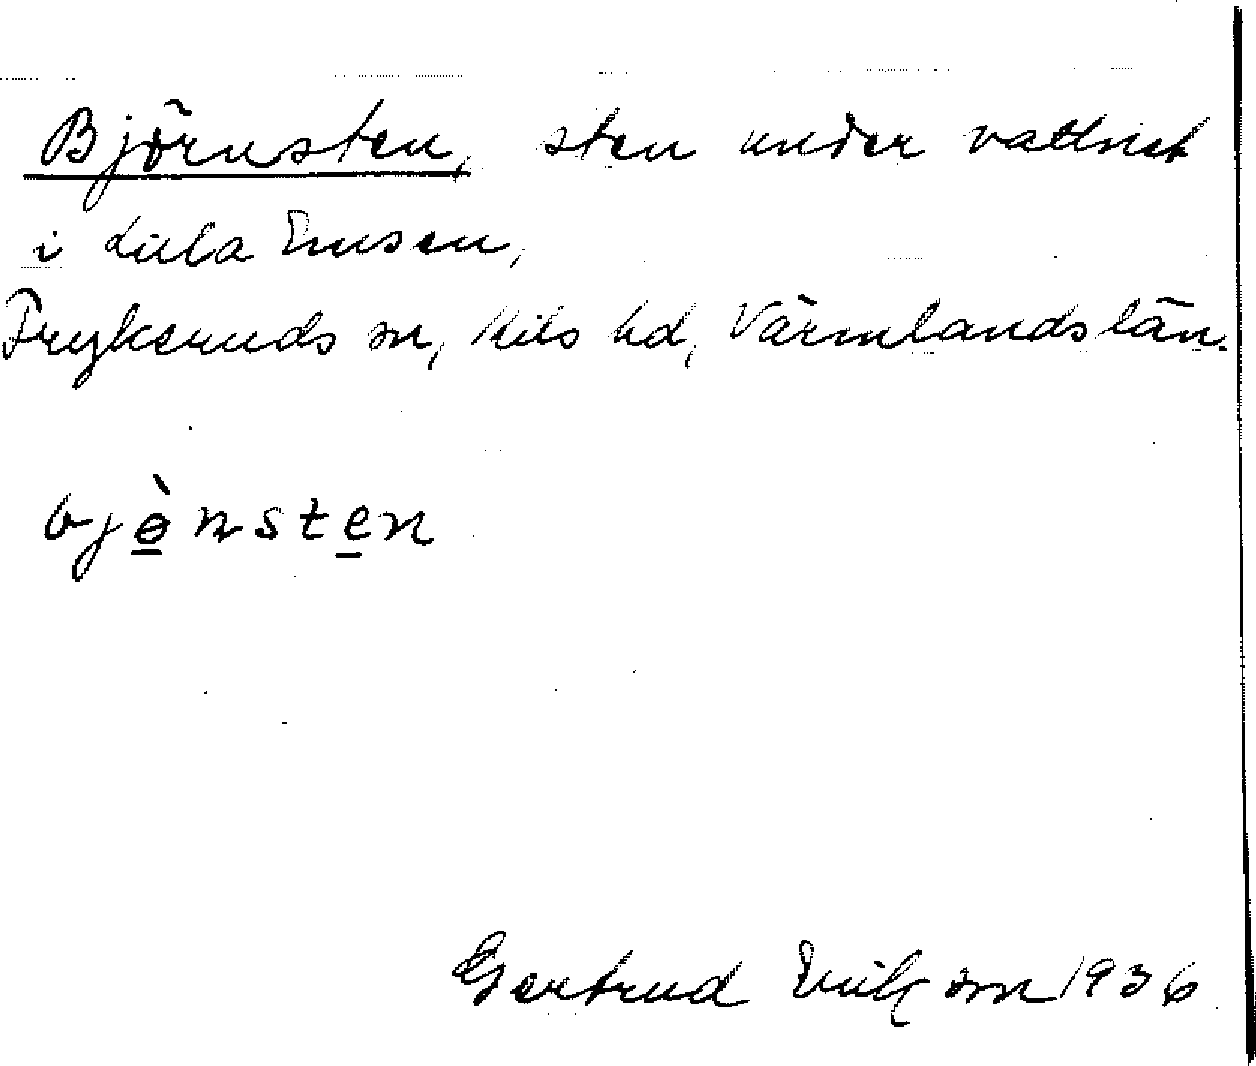 Björnsten, sten under vattnet
i Lilla Emsen,
Fryksenuds sn, Kils hd, Värmlands län.
bjö̀nsten
Gertrud Eriksson 1936